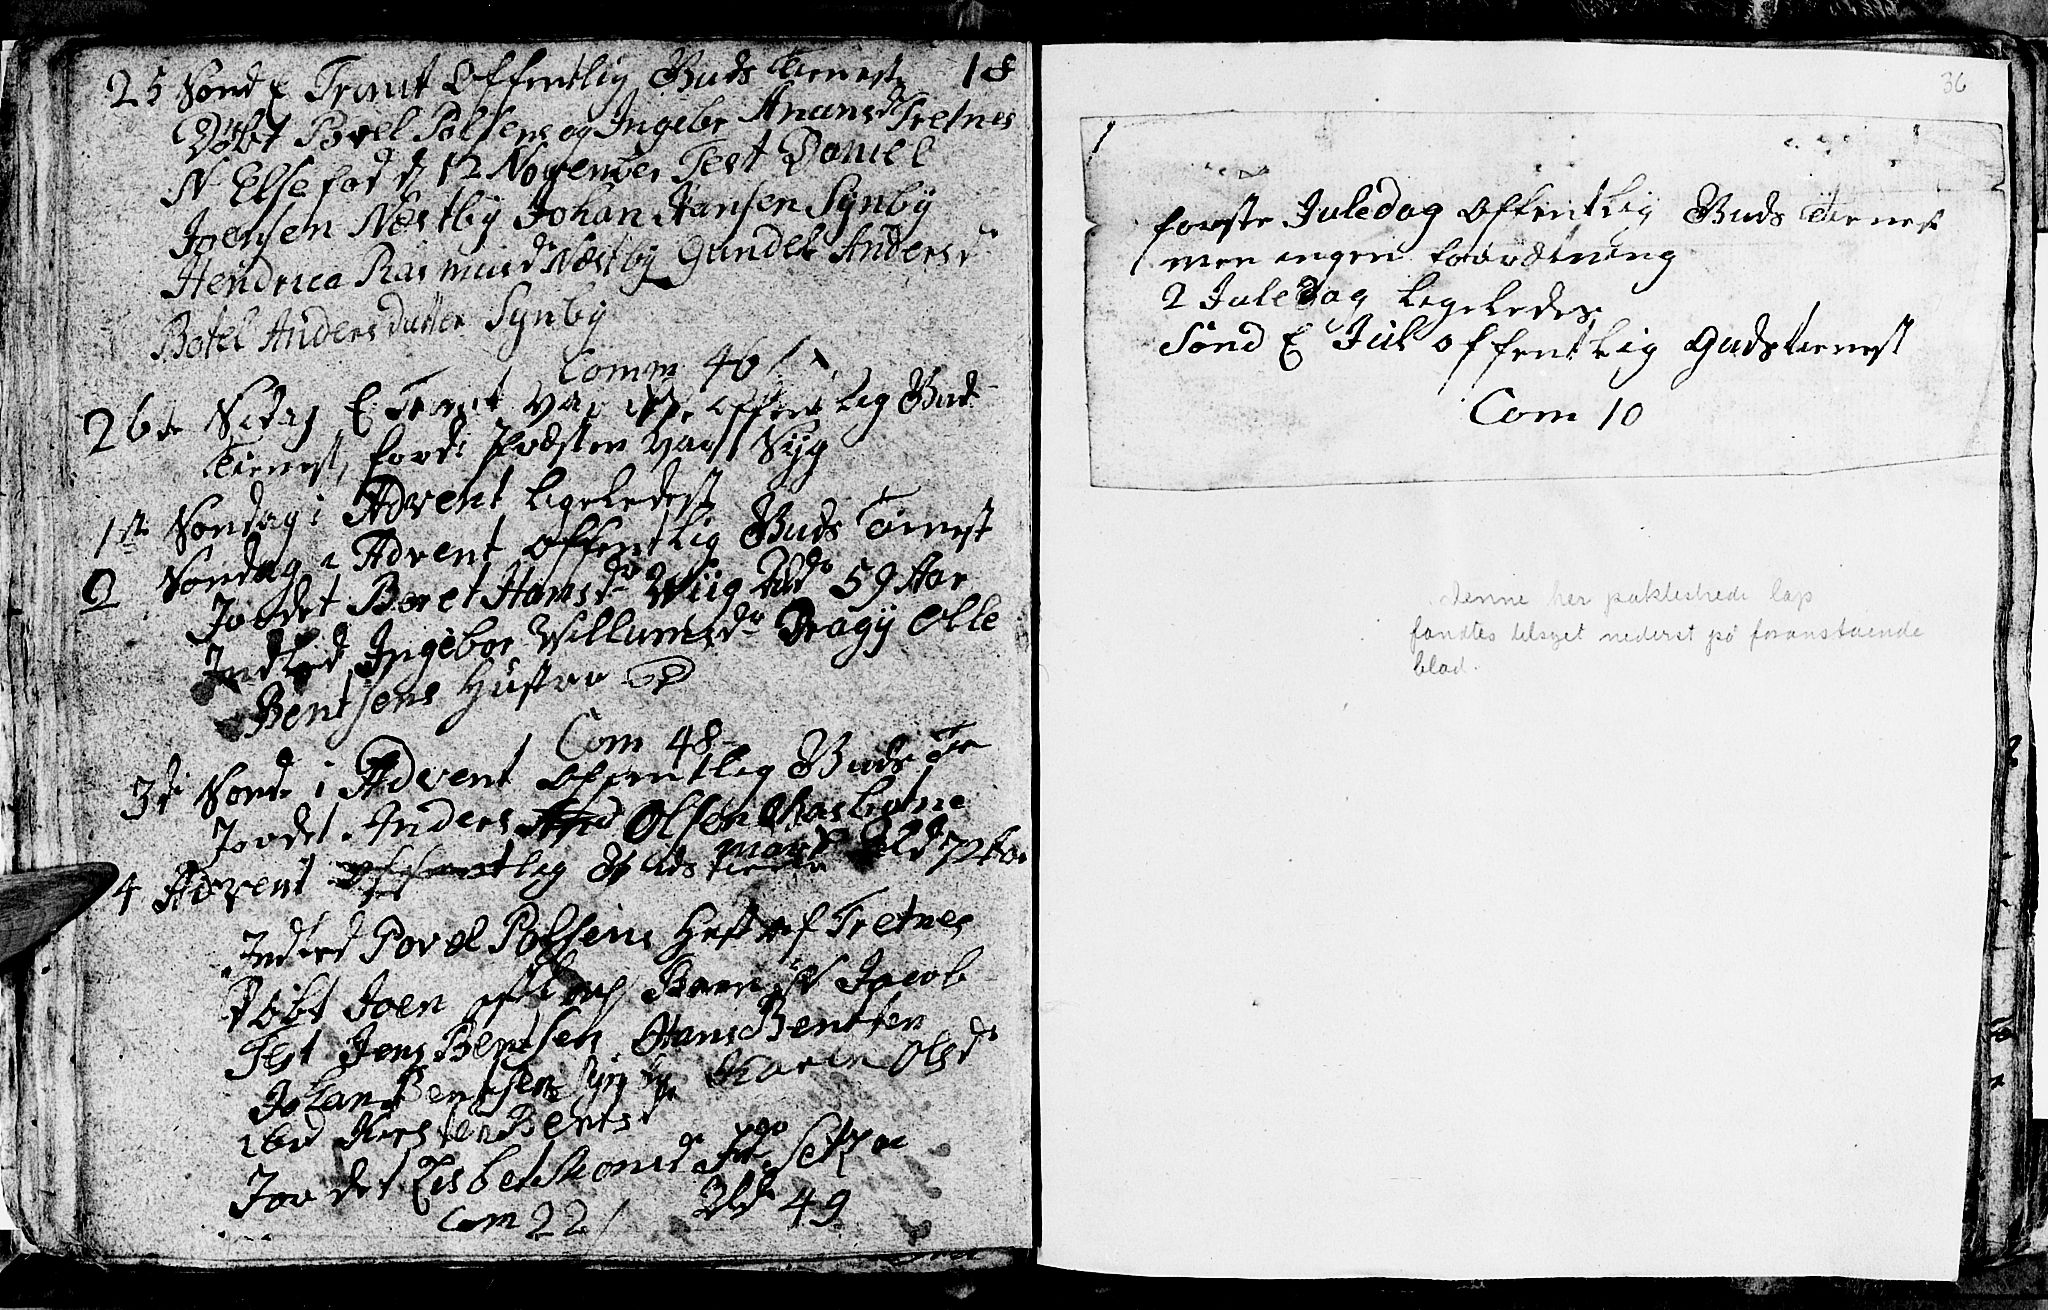 18
25 Sønd E Trinit Offentlig Guds Tieneste
Døbt Povel Polsens og Ingebr Amunsdr Tretnes
N Else fød d 12 November Test Daniel
Joensen Næstby Johan Hansen Synby
Hendrica Rasmusdr Næstby Gundel Andersdr
Botel Andersdatter Synby
Comm 46
26de Sødag E Trinit var ikke offentlig Guds
Tienest, fordi Præsten var Syg
1ste Søndag i Advent ligeledest
2 Søndag i Advent offentlig Guds Tienest
Jordet Beret Hansdr Wiig Ald 59 Aar
Indled Ingebor Willumsdr Dragy Olle
Bentsens Hustro
Com 48
3die Sønd i Advent offentlig Guds Tie
Jordet Anders Olsen
mark Ald 72 Aar
4 Advent offentlig Guds tieneste
Indled Povel Polsens Hust af Tretnes
Døbt Joen Barn N Jacob
Test Jens Bentsen Hans Bentsen
Johan Bentsen Karen Olsdr
ibd Kirsten Bentsdr
Jordet Lisbet
Ald 49
Com 22
36
første Juledag offentlig Guds Tienest
men ingen forretning
2 Juledag ligeledes
Sønd E Jul offentlig Gudstienest
Com 10
Denne her påklistrede lap
fandtes tilsyet nederst på foranstående
blad.